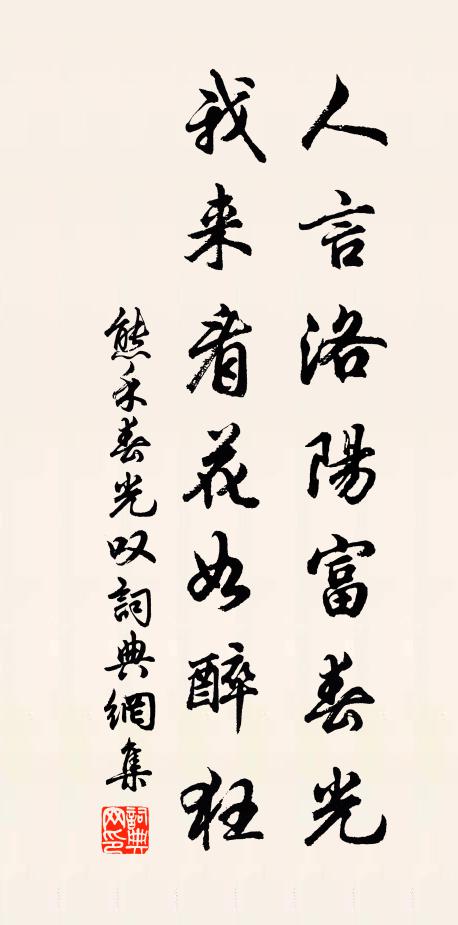 人言洛陽富春光
我来看花如醉狂
熊禾春光叹詞典網集
詞典网印